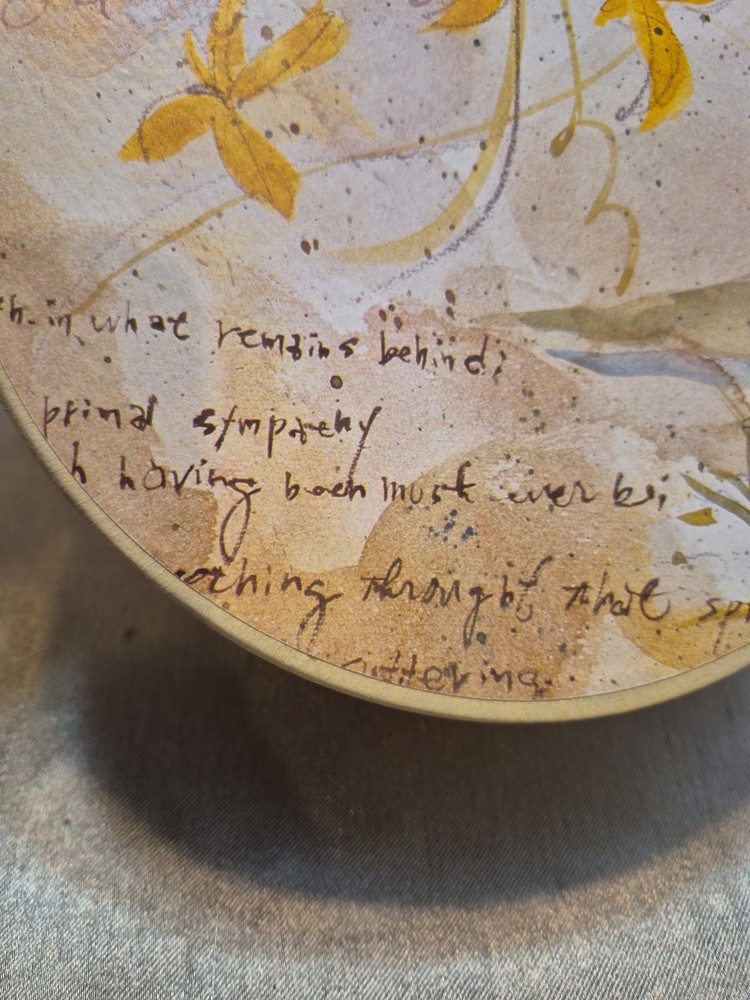 h. in what remains behind;
primal sympathy
h having been must ever be;
oothing throught that sp
uffering.